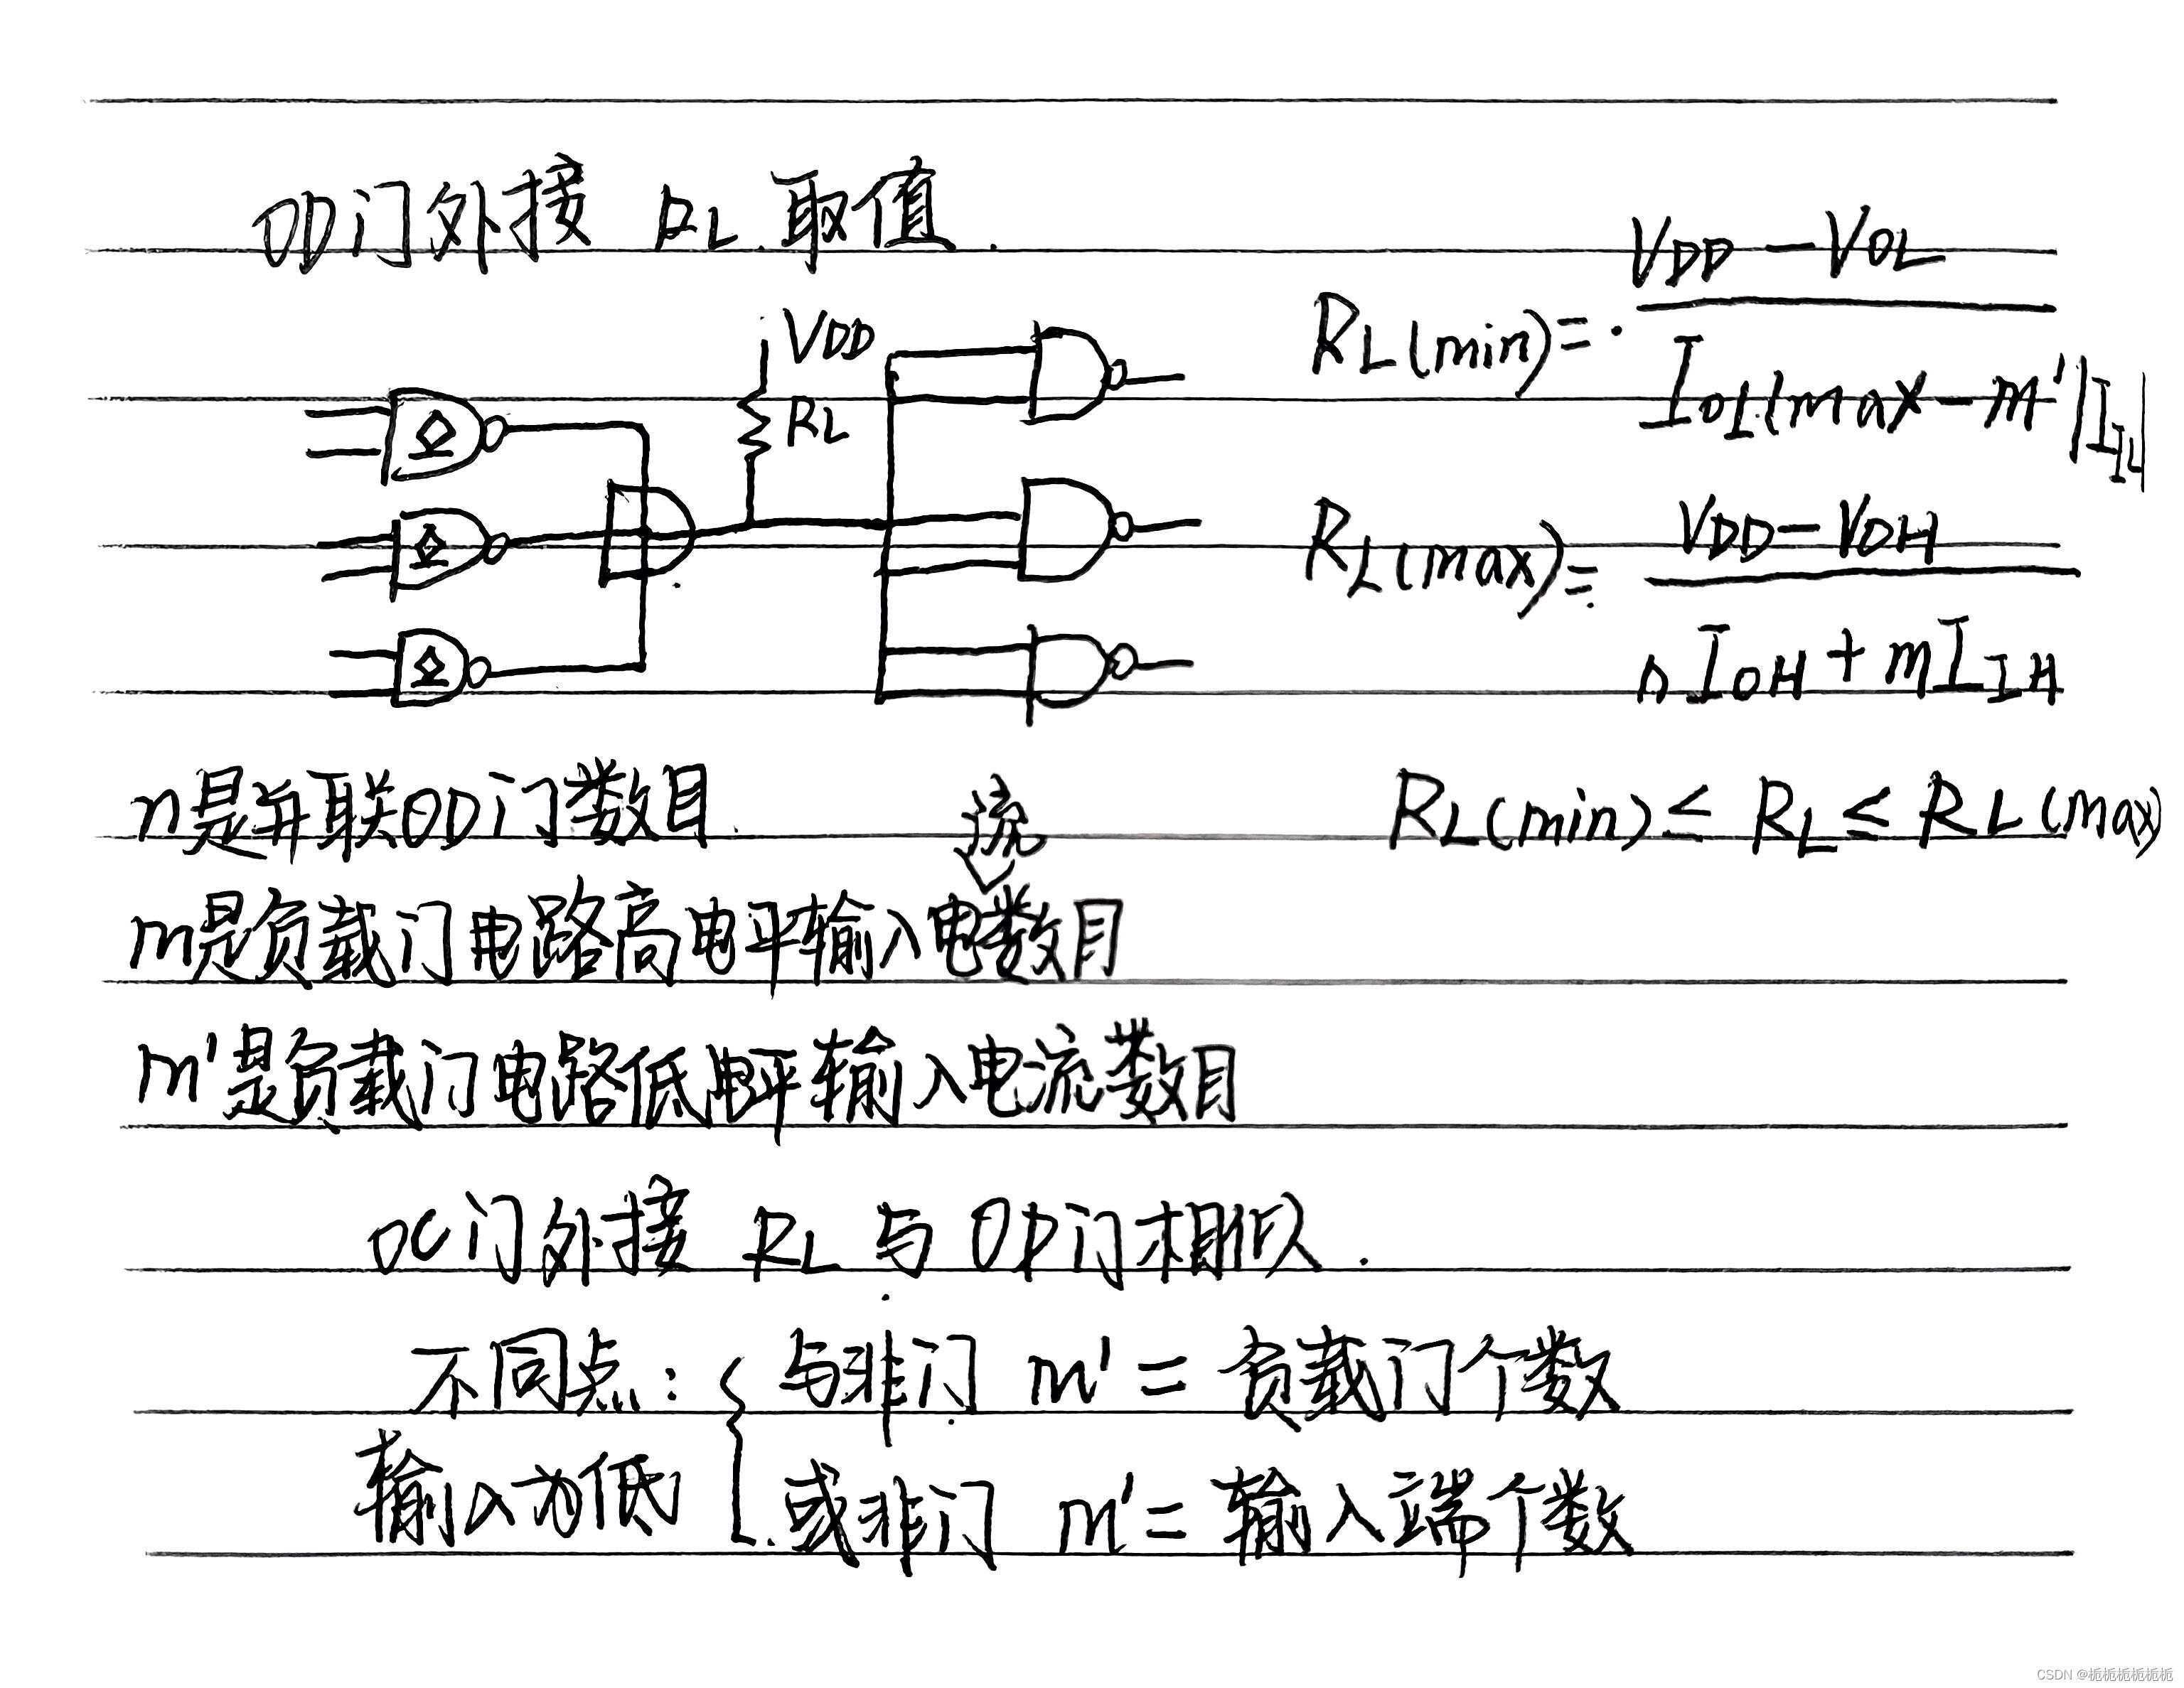 OD门外接 RL 取值.
VDD
RL
RL(min) =
VDD - VOL
IOL(max - m'|IIL|
RL(max) =
VDD - VOH
nIOH + mIIH
n是并联OD门数目
RL(min) ≤ RL ≤ RL(max)
m是负载门电路高电平输入电流数目
m'是负载门电路低电平输入电流数目
OC门外接 RL 与 OD门相似.
不同点: { 与非门 m' = 负载门个数
输入为低 或非门 m' = 输入端个数
CSDN @栀栀栀栀栀栀